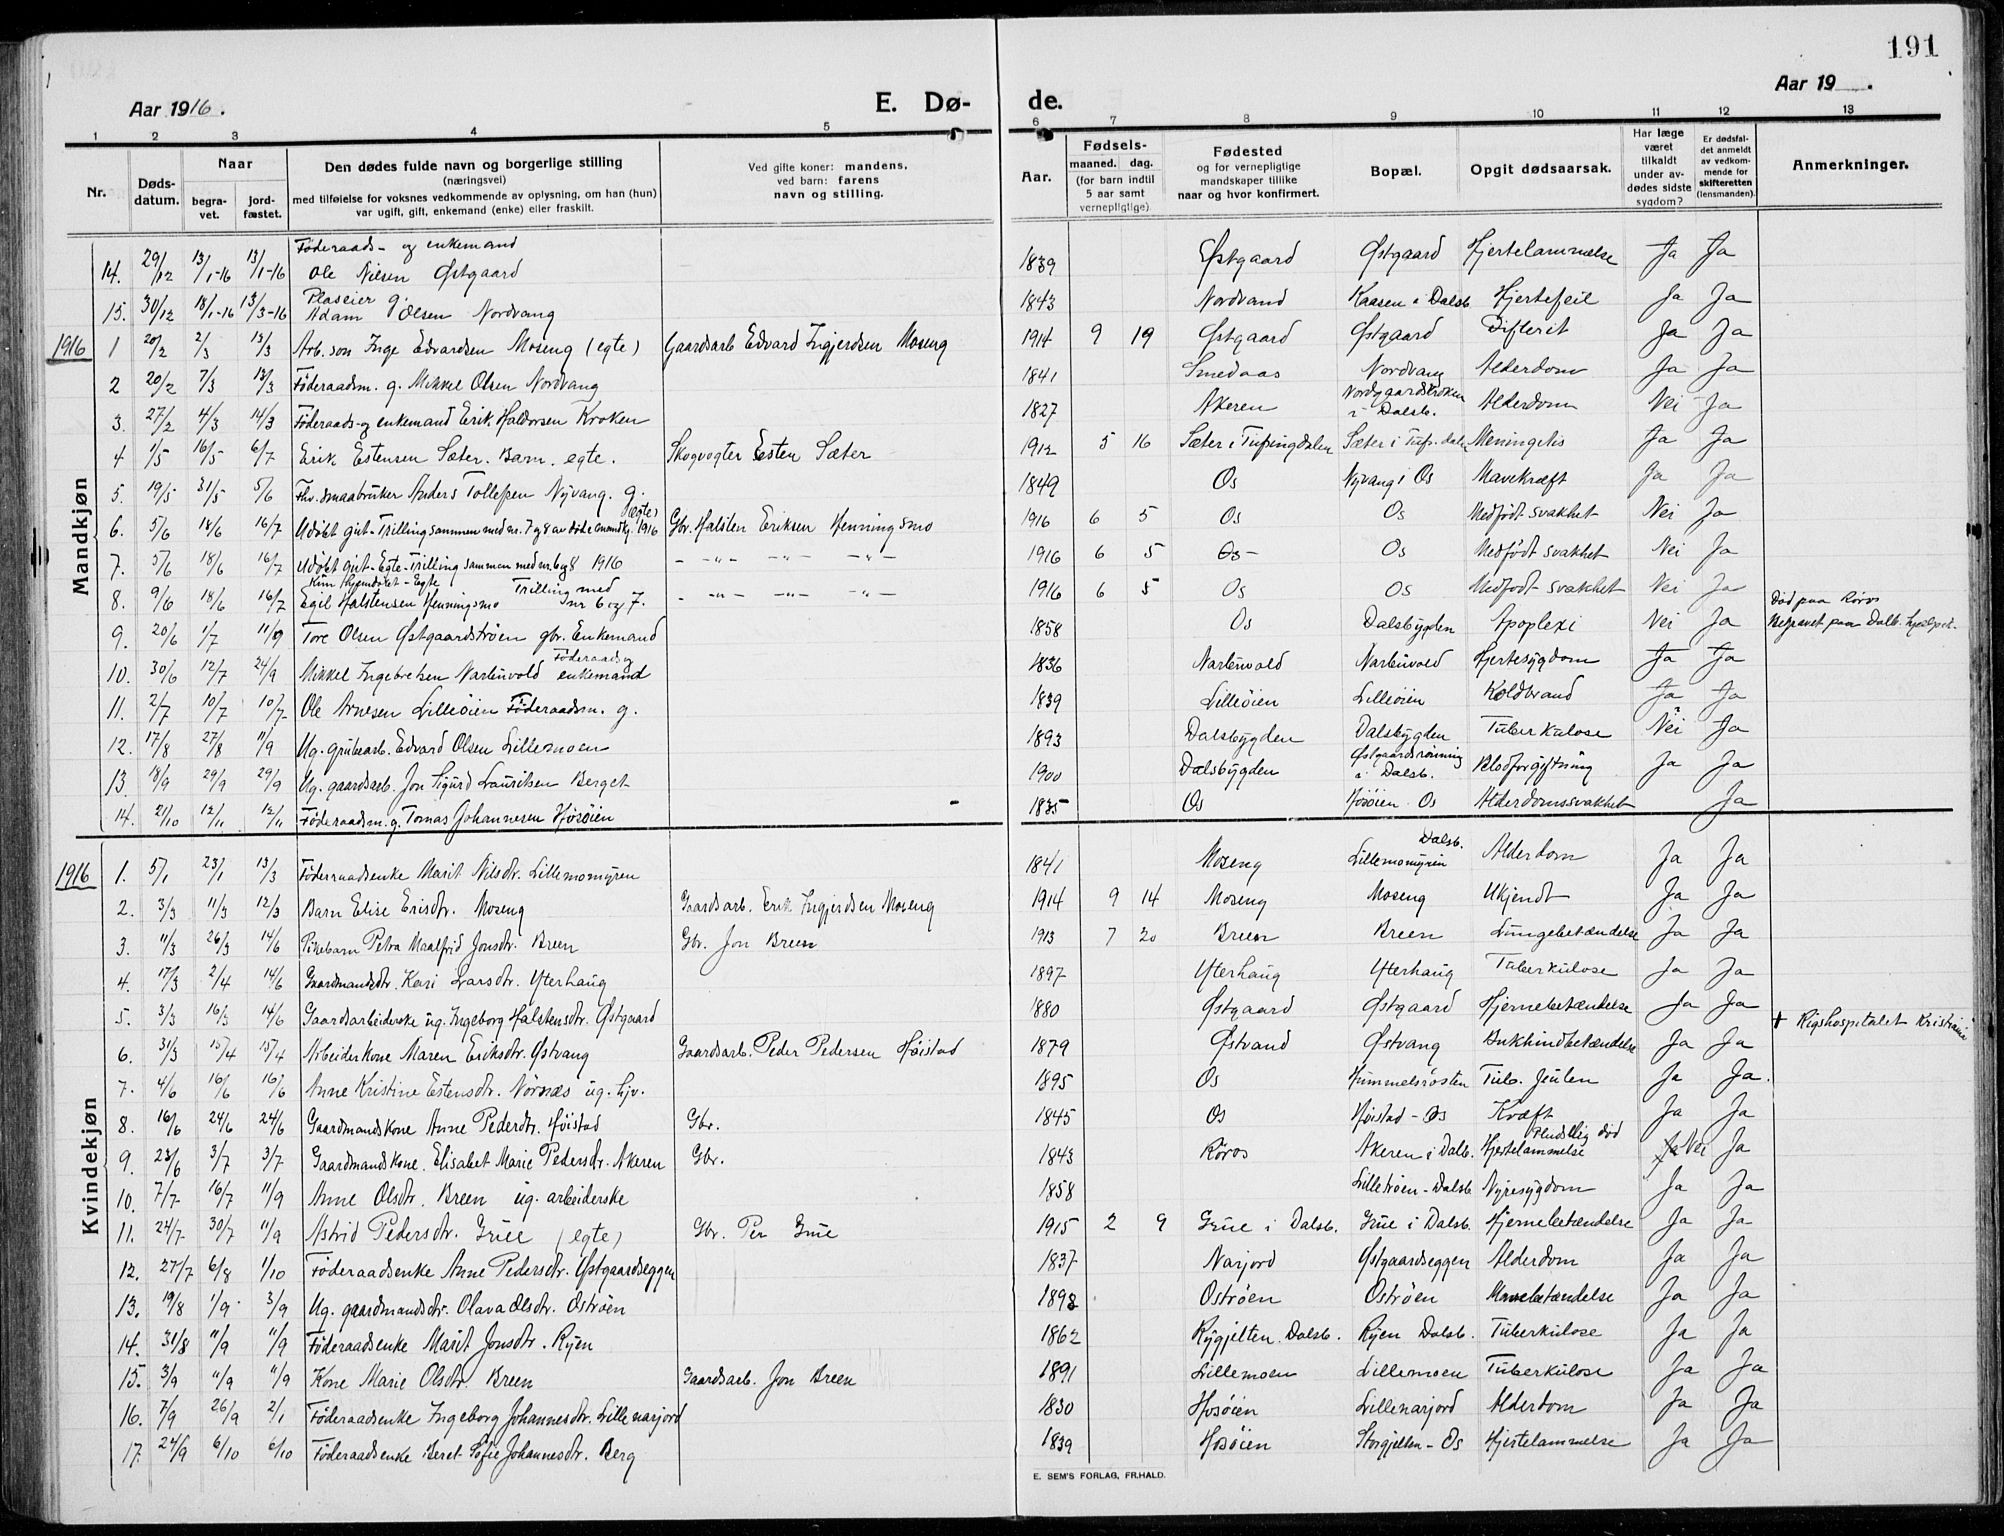 191
Aar 1916.
E. Dø-
de.
Aar 19 .
1 2 3 4 5 6 7 8 9 10 11 12 13
Nr.
Døds-datum.
Naar
begra-vet.
jord-fæstet.
Den dødes fulde navn og borgerlige stilling
(næringsvei)
med tilføielse for voksnes vedkommende av oplysning, om han (hun)
var ugift, gift, enkemand (enke) eller fraskilt.
Ved gifte koner: mandens,
ved barn: farens
navn og stilling.
Aar.
Fødsels-
maaned. dag.
(for barn indtil
5 aar samt
vernepligtige)
Fødested
og for vernepligtige
mandskaper tillike
naar og hvor konfirmert.
Bopæl.
Opgit dødsaarsak.
Har læge
været
tilkaldt
under av-
dødes sidste
sygdom?
Er dødsfal-
det anmeldt
av vedkom-
mende for
skifteretten
(lensmanden).
Anmerkninger.
Mandkjøn
14. 29/12 13/1-16 13/1-16 Føderaads- og enkemand Ole Nilsen Østgaard 1839 Østgaard Østgaard Hjertelammelse Ja Ja
15. 30/12 18/1-16 13/3-16 Plaseier g. Adam Olsen Nordvang 1843 Nordvand Kaasen i Dalsb. Hjertefeil Ja Ja
1916 1 20/2 2/3 13/3 Arb. søn Inge Edvardsen Moseng (egte) Gaardsarb Edvard Ingjerdsen Moseng 1914 9 19 Østgaard Østgaard Difterit Ja Ja
2 20/2 7/3 13/3 Føderaadsm. g. Mikkel Olsen Nordvang 1841 Smedaas Nordvang Alderdom Ja Ja
3. 27/2 4/3 14/3 Føderaads- og enkemand Erik Haldorsen Kroken 1827 Akeren Nordgaardskroken i Dalsb. Alderdom Nei Ja
4 1/5 16/5 6/7 Erik Estensen Sæter. Barn. egte. Skogvogter Esten Sæter 1912 5 16 Sæter i Tufsingdalen Sæter i Tufs.dalen Meningitis Ja Ja
5. 19/5 31/5 5/6 Fhv. smaabruker Anders Tollefsen Nyvang. g. 1849 Os Nyvang i Os Mavekræft Ja Ja
6. 5/6 18/6 16/7 Udøbt gut - Trilling sammen med nr. 7 og 8 av døde mandkj. 1916 (egte) Gbr. Halsten Eriksen Henningsmo 1916 6 5 Os Os Medfødt svakhet Nei Ja
7. 5/6 18/6 16/7 Udøbt gut - Egte - Trilling sammen med nr. 6 og 8 1916 - -"- -"- -"- 1916 6 5 Os Os Medfødt svakhet Nei Ja
8. 9/6 18/6 16/7 Kun hjemdøbt - Egte Egil Halstensen Henningsmo Trilling med nr 6 og 7. - -"- -"- -"- 1916 6 5 Os Os Medfødt svakhet Nei Ja
9. 20/6 1/7 11/9 Tore Olsen Østgaardstrøen gbr. Enkemand 1858 Os Dalsbygden Apoplexi Nei Ja Død paa Røros Begravet paa Dalb.
10. 30/6 12/7 24/9 Mikkel Ingebretsen Narbuvold Føderaads og enkemand 1836 Narbuvold Narbuvold Hjertesygdom Ja Ja
11. 2/7 10/7 10/7 Ole Arnesen Lilleøien Føderaadsm. g. 1839 Lilleøien Lilleøien Koldbrand Ja Ja
12. 17/8 27/8 11/9 Ug. grubearb. Edvard Olsen Lillemoen 1893 Dalsbygden Dalsbygden Tuberkulose Nei Ja
13. 18/9 29/9 29/9 Ug. gaardsarb. Jon Sigurd Lauritsen Berget 1900 Dalsbygden Østgaardsrønning i Dalsb. Blodforgiftning Ja Ja
14. 21/10 12/11 12/11 Føderaadsm. g. Tomas Johannesen Hosøien 1835 Os Hosøien Os Alderdomssvakhet Ja
Kvindekjøn
1916 1. 5/1 23/1 13/3 Føderaadsenke Marit Nilsdtr. Lillemomyren 1841 Moseng Lillemomyren Dalsb. Alderdom Ja Ja
2. 3/3 11/3 12/3 Barn Elise Erisdtr. Moseng Gaardsarb. Erik Ingjerdsen Moseng 1914 9 14 Moseng Moseng Ukjendt Ja Ja
3. 11/3 26/3 14/6 Pikebarn Petra Maalfrid Jonsdtr. Breen Gbr. Jon Breen 1913 7 20 Breen Breen Lungebetændelse Ja Ja
4. 17/3 2/4 14/6 Gaardmandsdtr. Kari Larsdtr. Ytterhaug 1897 Ytterhaug Ytterhaug Tuberkulose Ja Ja
5. 3/3 16/3 14/6 Gaardsarbeiderske ug. Ingeborg Halstensdtr. Østgaard 1880 Østgaard Østgaard Hjernebetændelse Ja Ja
6. 31/3 15/4 15/4 Arbeiderkone Maren Eriksdtr. Østvang Gaardsarb. Peder Pedersen Høistad 1879 Østvand Østvang Bukhindbetændelse Ja Ja † Rigshospitalet Kristiania
7. 4/6 16/6 16/6 Anne Kristine Estensdtr. Nørnæs ug. hjv. 1895 Os Hummelsrosten Tub. Ja Ja.
8. 16/6 24/6 24/6 Gaardmandskone Anne Pedersdtr. Høistad Gbr. 1845 Os Høistad - Os Kræft Ja Ja
9. 23/6 3/7 3/7 Gaardmandskone. Elisabet Marie Pedersdtr. Akeren Gbr. 1843 Røros Akeren i Dalb. Pludselig død Hjertelammelse Ja Nei Ja
10. 7/7 16/7 11/9 Anne Olsdtr. Breen ug. arbeiderske 1858 Lillestrøen - Dalsb Nyresygdom Ja Ja
11. 24/7 30/7 11/9 Astrid Pedersdtr. Grue (egte) Gbr. Per Grue 1915 2 9 Grue i Dalsb. Grue i Dalsb. Hjernebetændelse Ja Ja
12. 27/7 6/8 1/10 Føderaadsenke Anne Pedersdtr. Østgaardseggen 1837 Narjord Østgaardseggen Alderdom Ja Ja
13. 19/8 1/9 3/9 Ug. gaardmandsdtr. Olava Olsdtr. Ostrøen 1898 Ostrøen Ostrøen Mavebetændelse Ja Ja
14. 31/8 11/9 11/9 Føderaadsenke Marit Jonsdtr. Ryen 1862 Rygjelten. Dalsb. Ryen Dalsb. Tuberkulose Ja Ja
15. 3/9 11/9 11/9 Kone Marie Olsdtr. Breen Gaardsarb. Jon Breen 1891 Lillemoen Lillemoen Tuberkulose Ja Ja
16. 7/9 26/9 2/1 Føderaadsenke Ingeborg Johannesdtr. Lillenarjord 1830 Hosøien Lillenarjord Alderdom Ja Ja
17. 24/9 6/10 6/10 Føderaadsenke Beret Sofie Johannesdtr. Berg 1839 Hosøien Storgjelten - Os Hjertelammelse Ja Ja
E. SEM'S FORLAG, FR.HALD.